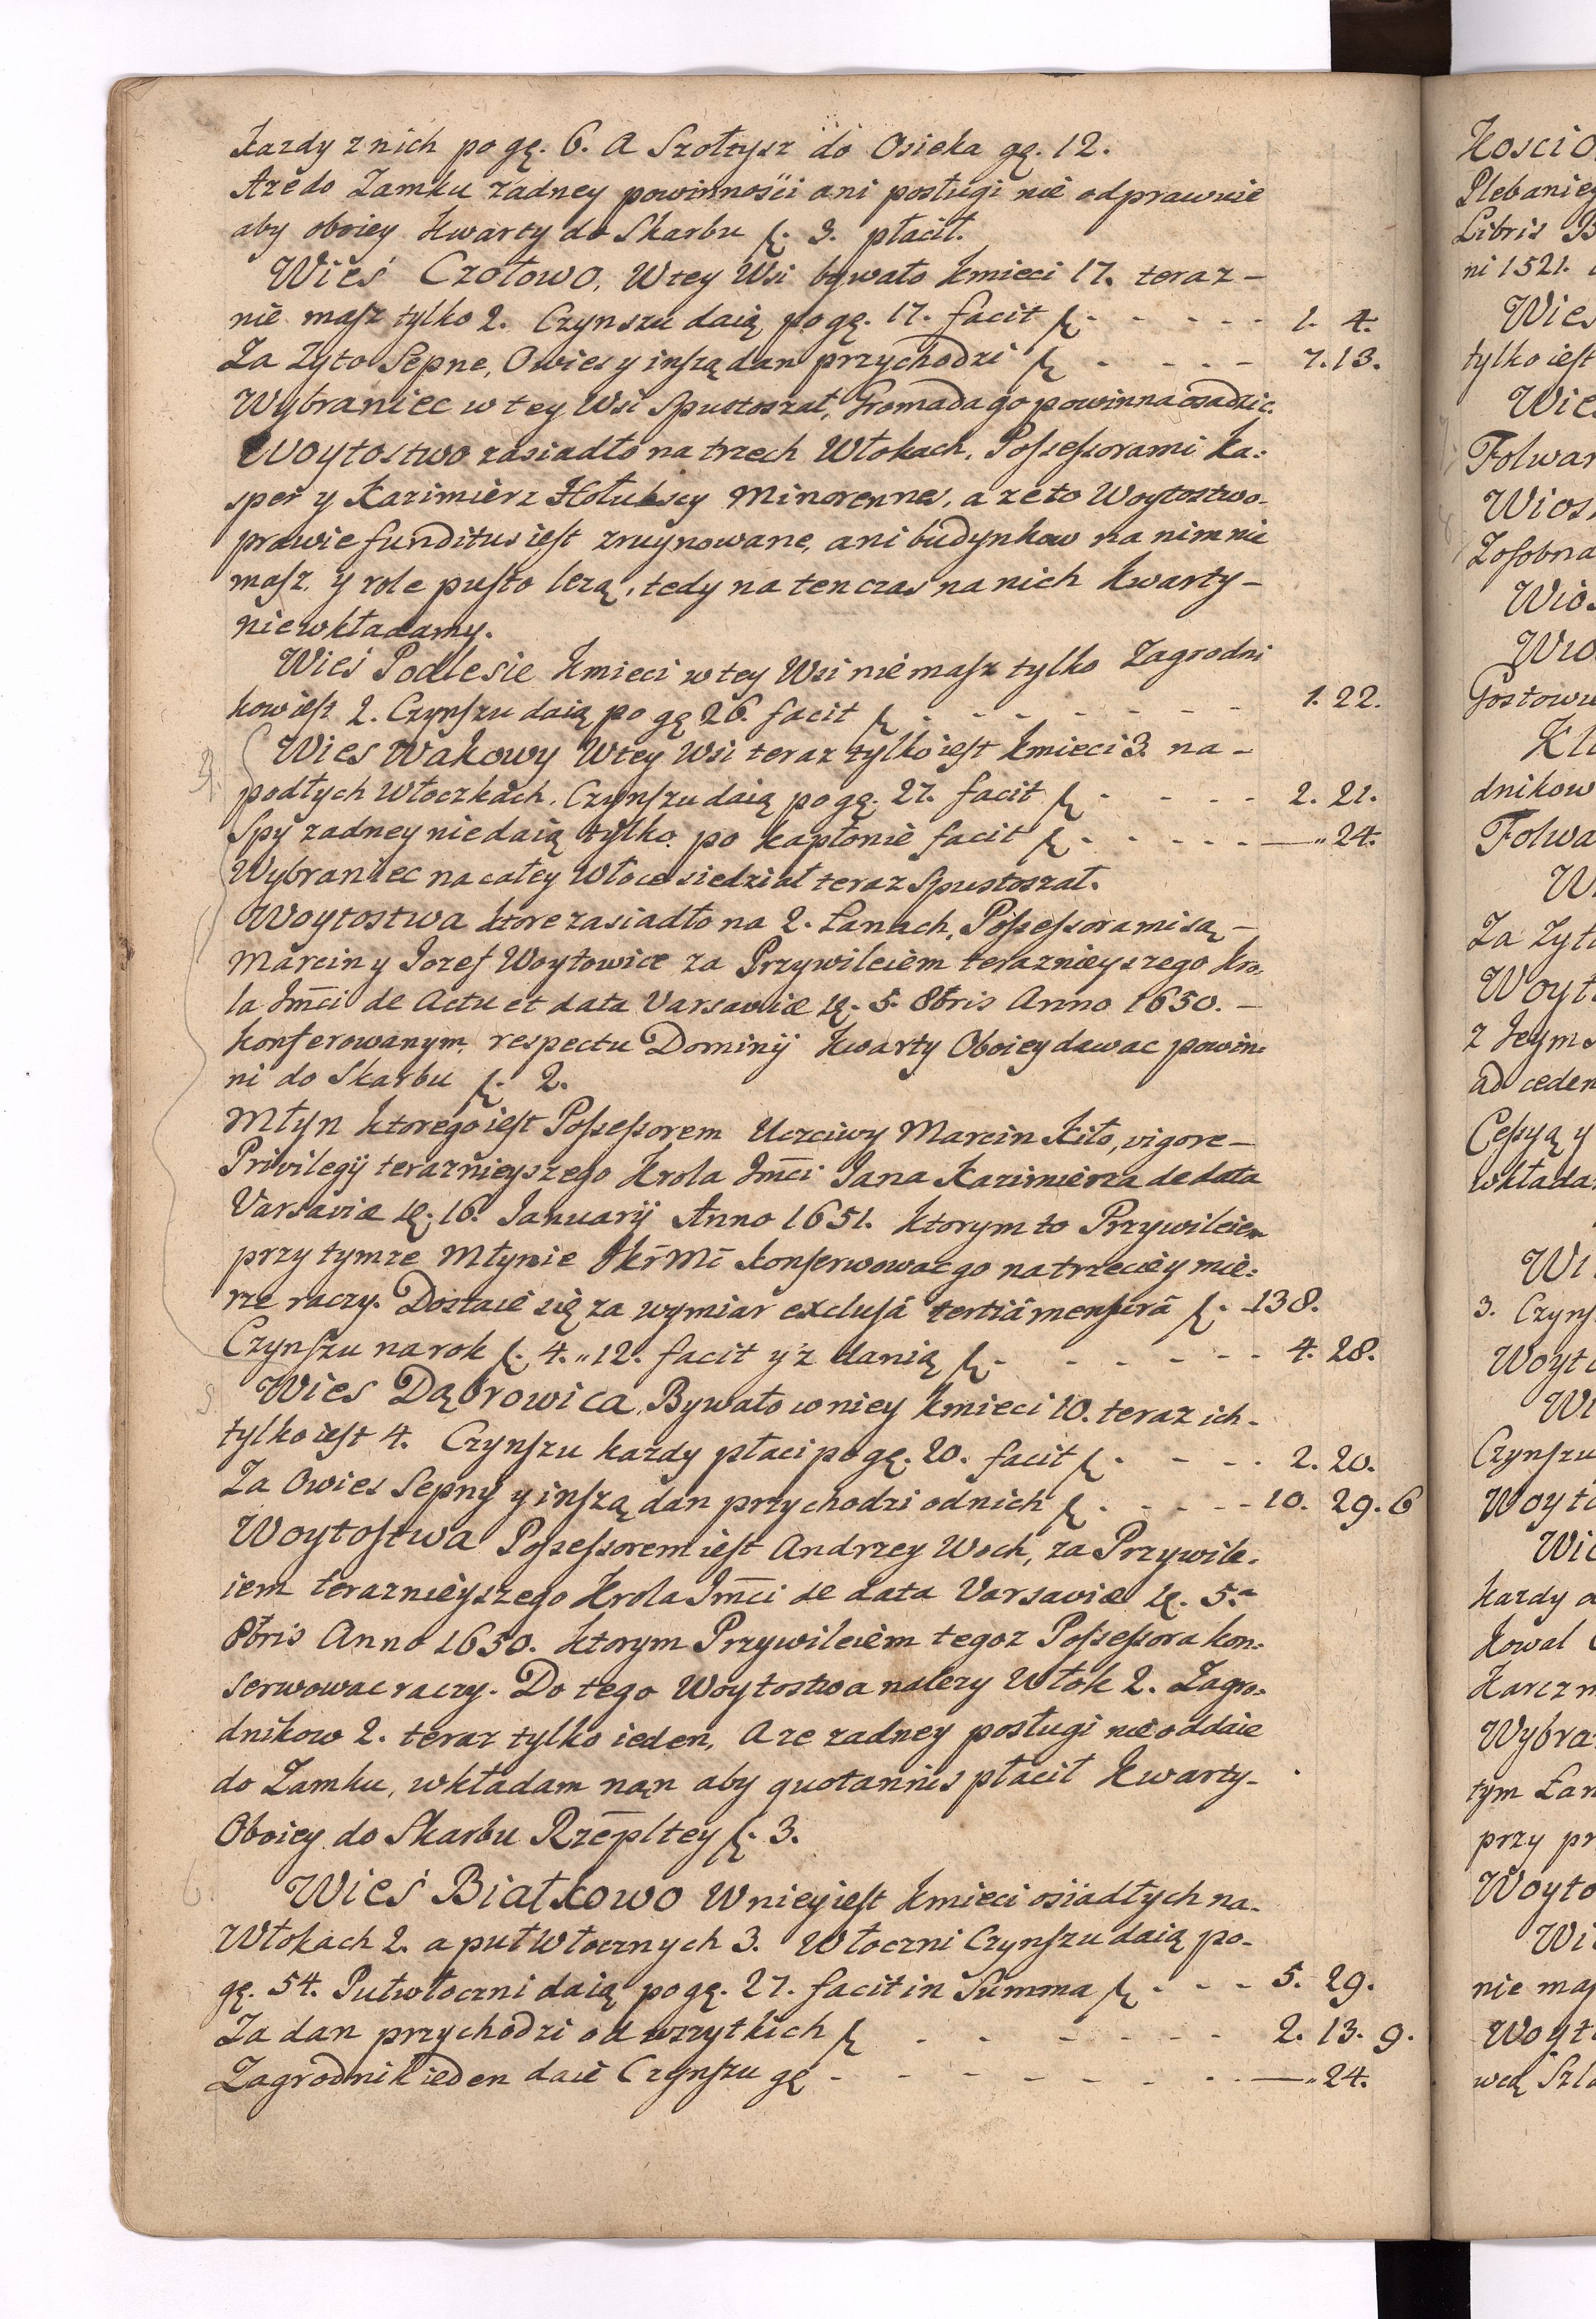 każdy z nich po gę. 6. A Szołtysz do Osieka gę. 12.
Aze do Zamku żadney powinności ani posługi nie odprawuie
aby oboiey Kwarty do Skarbu f. 3. płacił.
Wieś Czołowo, W tey Wsi bywało Kmieci 17. teraz –
nie masz tylko 2. Czynszu daią po gę. 17. facit f. - - - - - 1. 4.
Za Zyto Sepne, Owies y inszą dan przychodzi f. - - - - 7. 13.
Wybraniec w tey Wsi Spustoszał, Gromada go powinna osadzic.
Woytostwo zasiadło na trzech Włokach, Possessorami Ka:
sper y Kazimierz Hołubscy Minorennes, a ze to Woytostwo
prawie funditus iest zruynowane, ani budynkow na nim nie
masz, y role pusto lezą, tedy na ten czas na nich Kwarty –
nie wkładamy.
Wieś Podlesie Kmieci w tey Wsi nie masz tylko Zagrodni
kow iest 2. Czynszu daią po gę 26. facit f. - - - - - - - 1. 22.
Wies Wakowy W tey Wsi teraz tylko iest Kmieci 3. na –
podłych Włoczkach. Czynszu daią po gę. 27. facit f. - - - - - 2. 21.
Spy zadney nie daią tylko po kapłonie facit f. - - - - - — „ 24.
Wybraniec na całey Włoce siedział teraz Spustoszał.
Woytostwa ktore zasiadło na 2. Łanach, Possessorami są –
Marcin y Iozef Woytowicze za Przywileiem teraznieyszego Kro:
la Jm̄ci de Actu et data Varsaviæ d. 5. 8bris Anno 1650. –
konferowanym, respectu Dominij Kwarty Oboiey dawac powin:
ni do Skarbu f. 2.
Młyn ktorego iest Possessorem Uczciwy Marcin Kiło, vigore –
Privilegij teraznieyszego Krola Jm̄ci Jana Kazimierza de data
Varsaviæ d. 16. Januarij Anno 1651. ktorym to Przywileiem
przy tymze Młynie JKr̄ Mc̄ konserwowac go na trzeciey mie:
rze raczy. Dostaie się za wymiar exclusâ tertiâ mensurâ f. 138.
Czynszu na rok f. 4. „ 12. facit y z danią f. - - - - - - 4. 28.
Wies Dąbrowica, Bywało w niey Kmieci 10. teraz ich –
tylko iest 4. Czynszu kazdy płaci po gę. 20. facit f. - - - - 2. 20.
Za Owies Sepny y inszą dan przychodzi od nich f. - - - - - 10. 29. 6
Woytostwa Possessorem iest Andrzey Woch, za Przywile:
iem teraznieyszego Krola Jm̄ci de data Varsaviæ d. 5ª
8bris Anno 1650. ktorym Przywileiem tegoz Possessora kon:
serwowac raczy. Do tego Woytostwa nalezy Włok 2. Zagro:
dnikow 2. teraz tylko ieden, A ze zadney posługi nie oddaie
do Zamku, wkładam nąn aby quotannis płacił Kwarty –
Oboiey do Skarbu Rzēpltey f. 3.
Wieś Białkowo W niey iest Kmieci osiadłych na –
Włokach 2. a pułwłocznych 3. Włoczni Czynszu daią po –
gę. 54. Pułwłoczni daią po gę. 27. facit in Summa f. - - - 5. 29.
Za dan przychodzi od wszytkich f. - - - - - - 2. 13. 9.
Zagrodnik ieden daie Czynszu gę - - - - - - - - — „ 24.